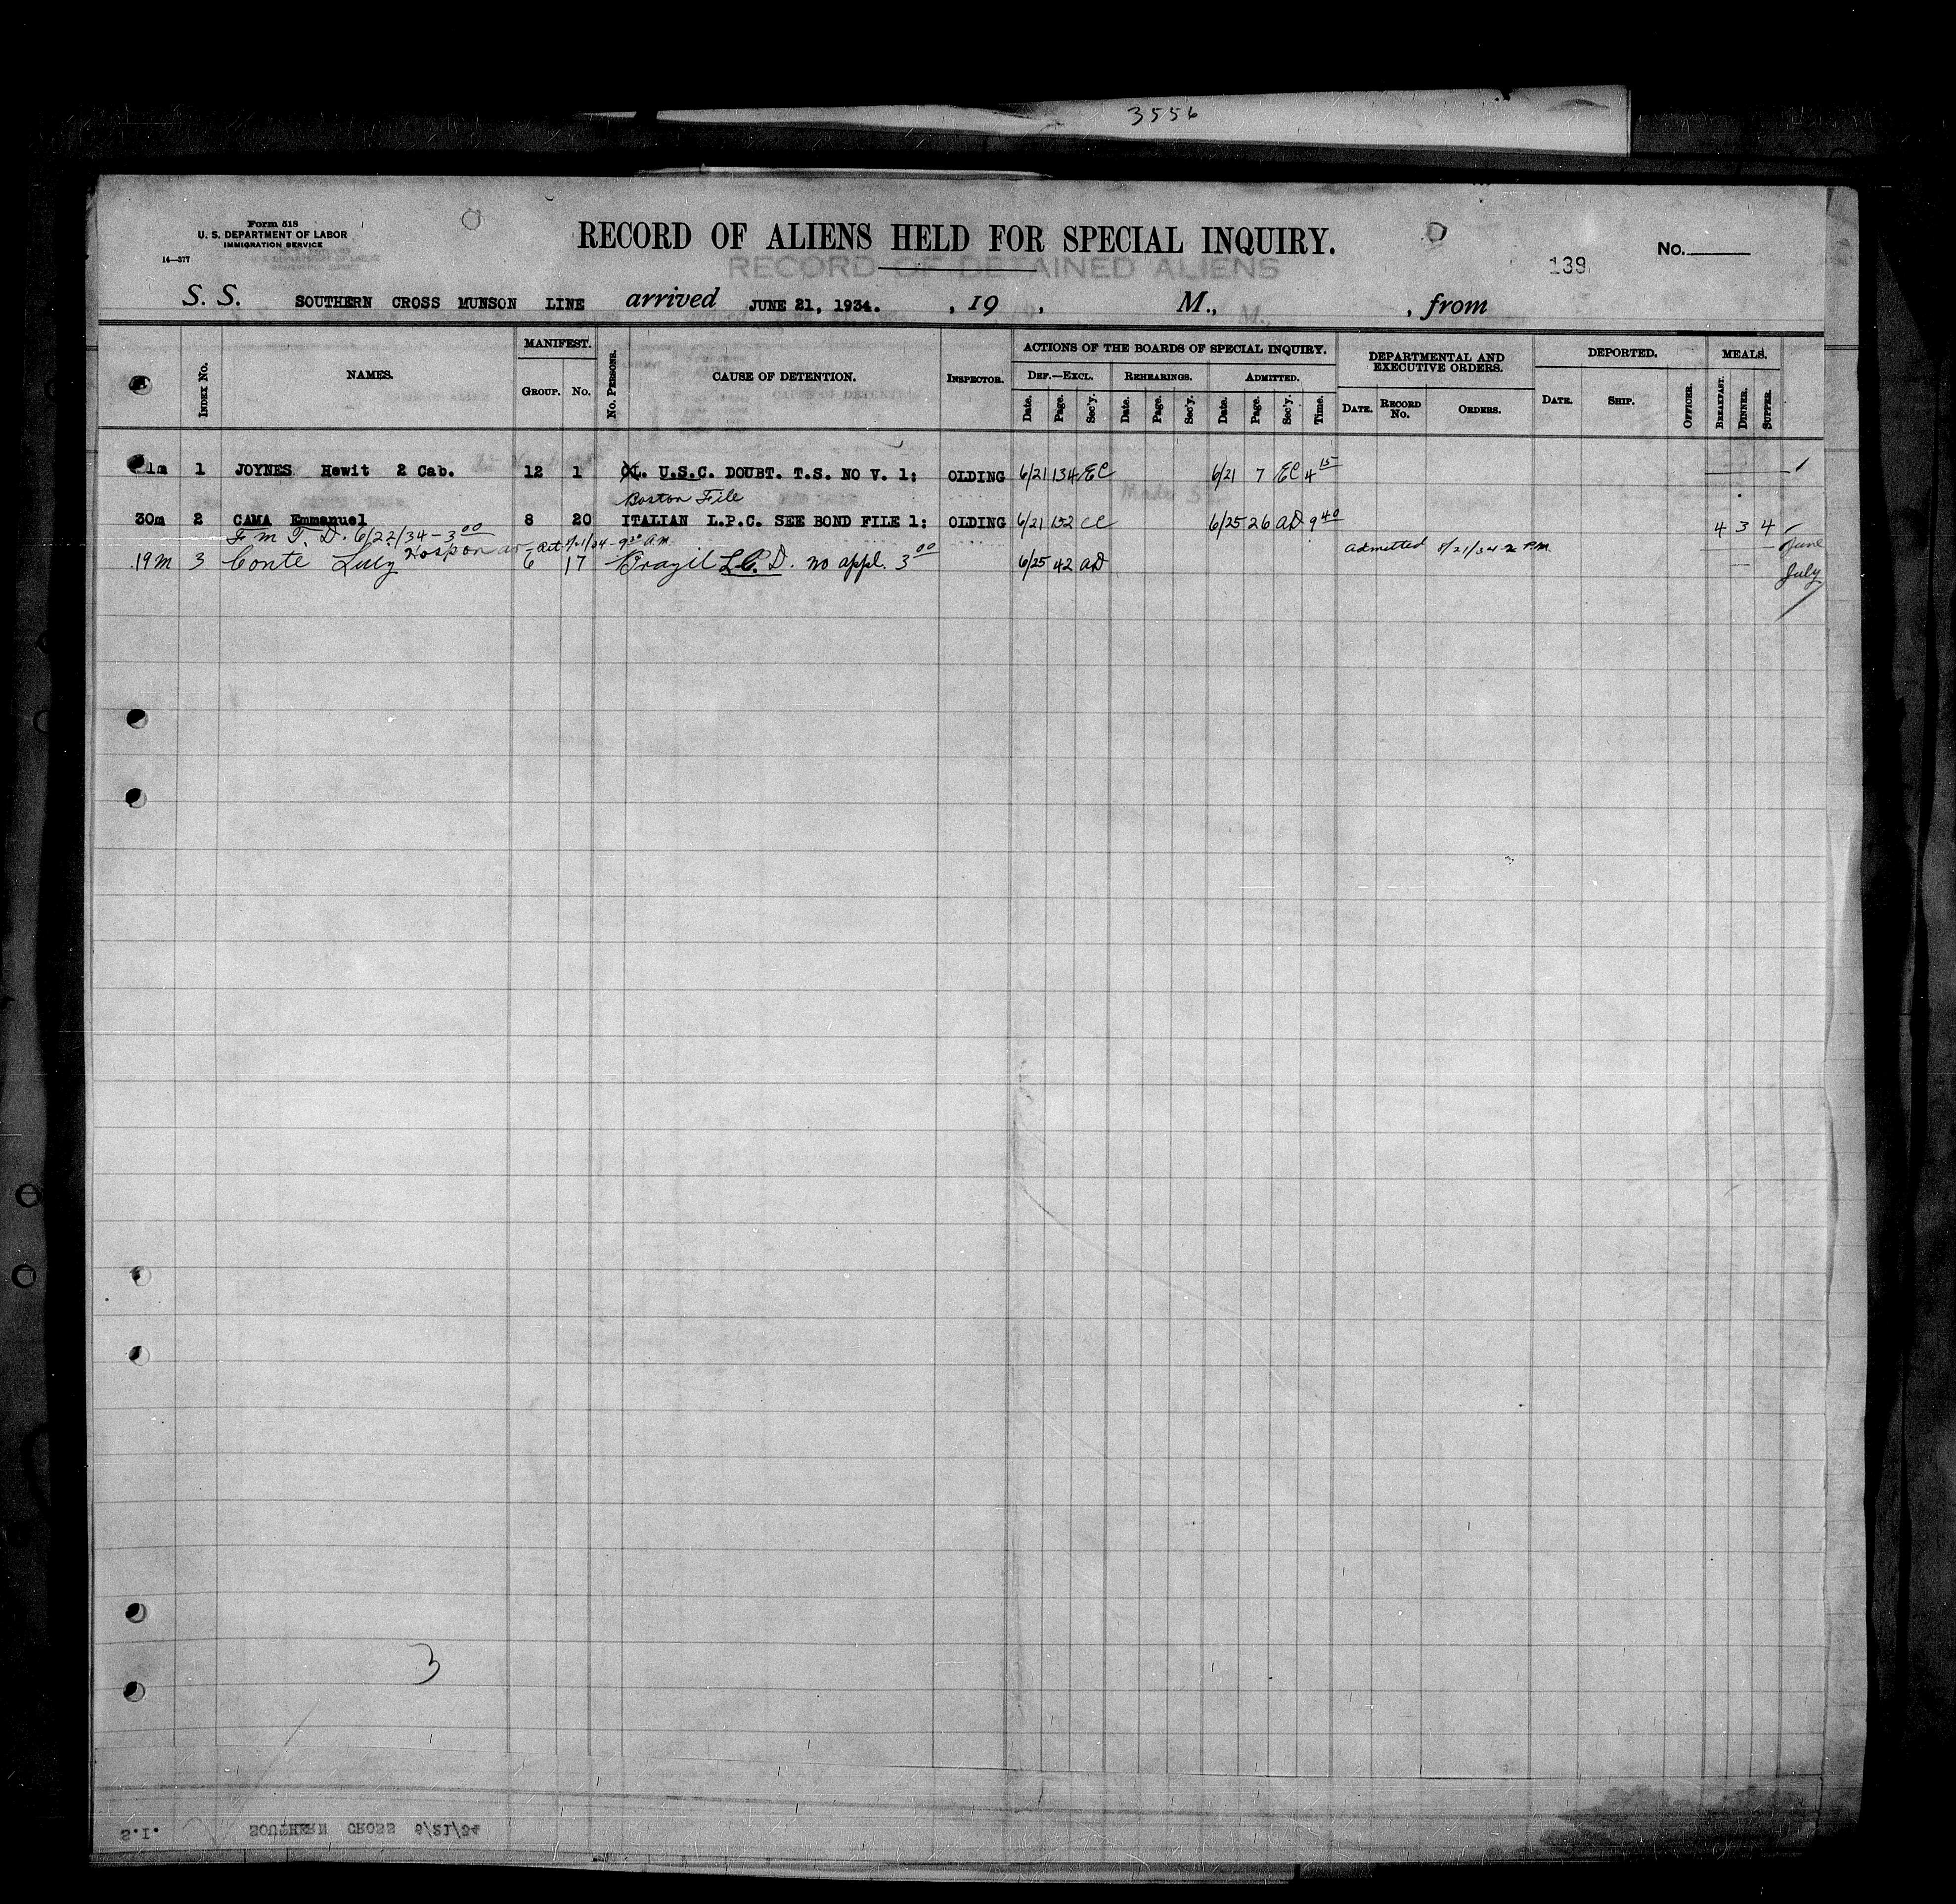 3556
Form 518
U. S. DEPARTMENT OF LABOR
IMMIGRATION SERVICE
14—377
RECORD OF ALIENS HELD FOR SPECIAL INQUIRY.
RECORD OF DETAINED ALIENS
139
No.
S. S. SOUTHERN CROSS MUNSON LINE arrived JUNE 21, 1934. , 19 , M., , from
INDEX No. NAMES. MANIFEST. GROUP. No. No. PERSONS. CAUSE OF DETENTION. INSPECTOR. ACTIONS OF THE BOARDS OF SPECIAL INQUIRY. DEPARTMENTAL AND EXECUTIVE ORDERS. DEPORTED. MEALS.
DEF.—EXCL. REHEARINGS. ADMITTED.
Date. Page. Sec'y. Date. Page. Sec'y. Date. Page. Sec'y. Time. DATE. RECORD No. ORDERS. DATE. SHIP. OFFICER. BREAKFAST. DINNER. SUPPER.
1m 1 JOYNES Hewit 2 Cab. 12 1 U.S.C. DOUBT. T.S. NO V. 1; OLDING 6/21 134 EC 6/21 7 EC 4 15
Boston File
30m 2 CAMA Emmanuel 8 20 ITALIAN L.P.C. SEE BOND FILE 1; OLDING 6/21 152 CC 6/25 26 AD 9 40 4 3 4
Fm T. D. 6/22/34 - 3 00
19m 3 Conte Luiy 6 17 Brazil L.C.D. no appl. 3 00 6/25 42 AD Admitted June
July
3
S.I. SOUTHERN CROSS 6/21/34